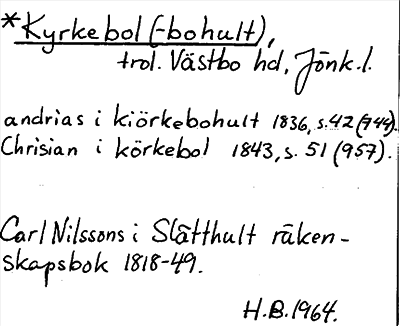 *Kyrkebol (-bohult),
trol. Västbo hd, Jönk.l.
andrias i kiörkebohult 1836, s.42 (944).
Chrisian i körkebol 1843, s. 51 (957).
Carl Nilssons i Slätthult räken-
skapsbok 1818-49.
H.B.1964.